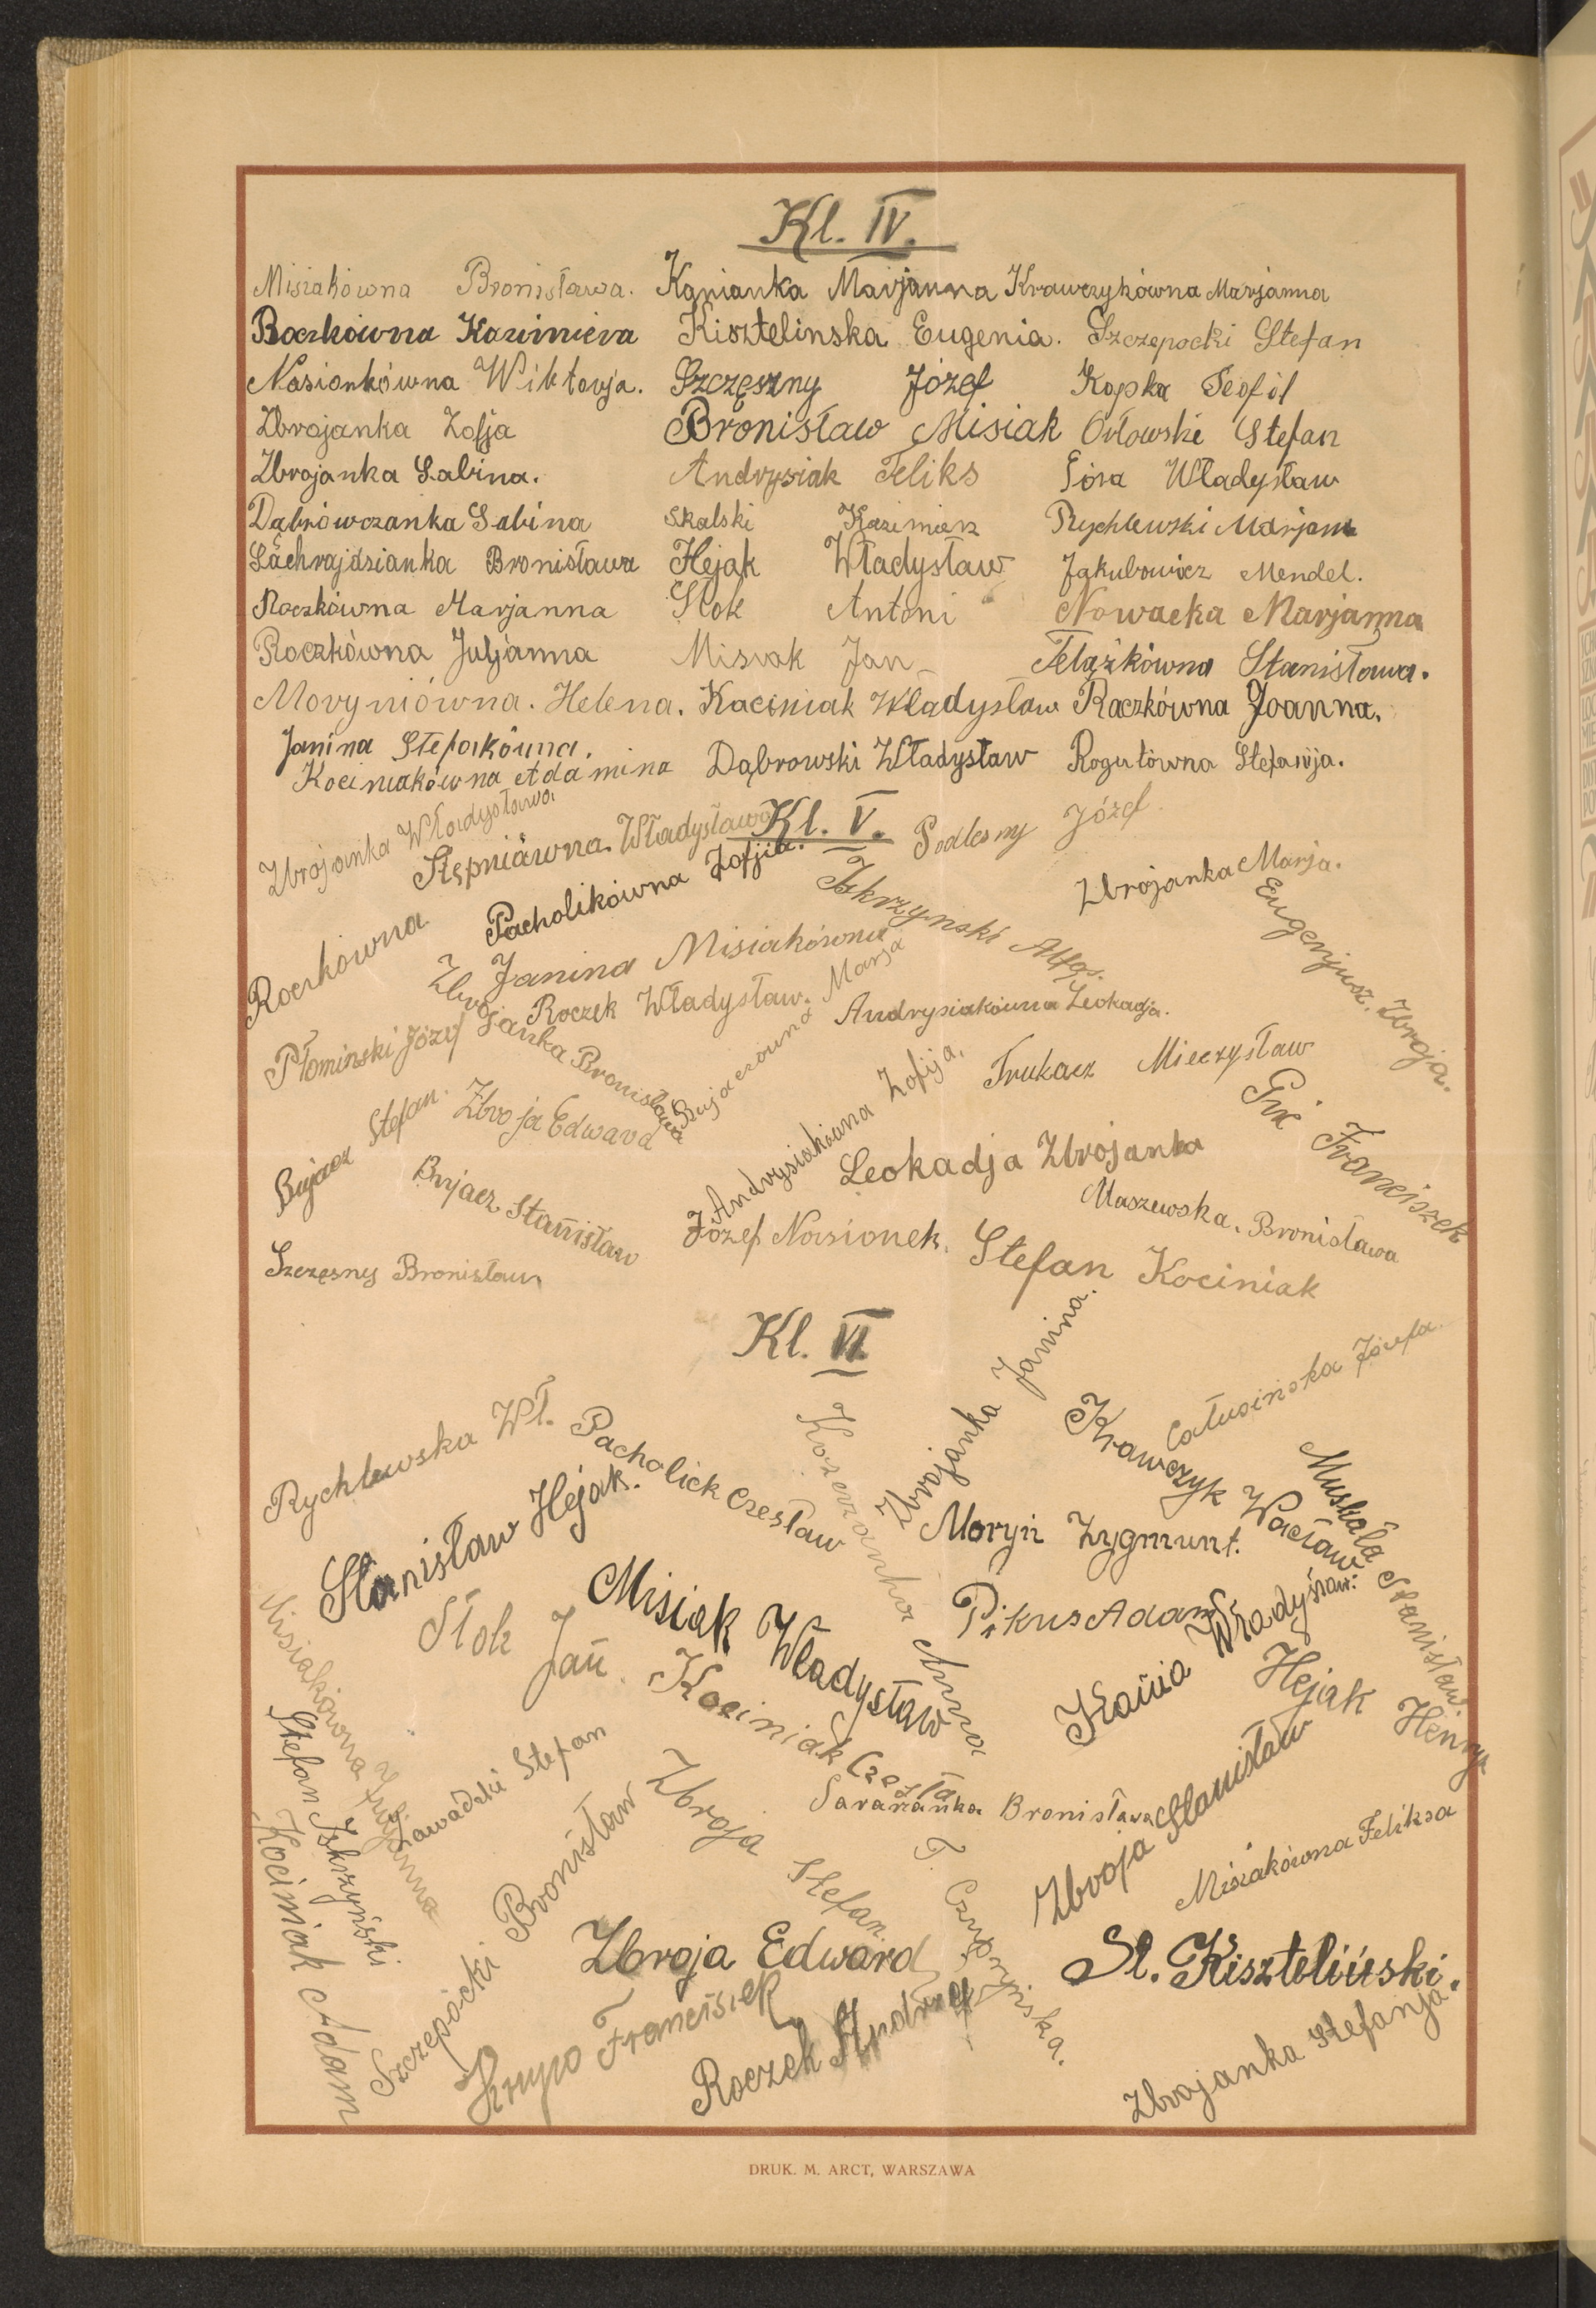 Kl. IV.
Misiakówna Bronisława. Kanianka Marjanna Krawczykówna Marjanna
Roczkówna Kazimiera Kisztelinska Eugenia. Szczepocki Stefan
Nasionkówna Wiktorja. Szczęszny Józef Kopka Teofil
Zbrojanka Zofja Bronisław Misiak Orłowski Stefan
Zbrojanka Sabina. Andrysiak Feliks Góra Władysław
Dąbrówczanka Sabina Skalski Kazimierz Rychlewski Marjan
Sachrajdzianka Bronisława Hejak Władysław Jakubowicz Mendel.
Roczkówna Marjanna Stok Antoni Nowacka Marjanna
Roczkówna Juljanna Misiak Jan Felążkówna Stanisława.
Moryniówna. Helena. Kaciniak Władysław Raczkówna Joanna.
Janina Stefaikówna.
Kociniakówna Adamina Dąbrowski Władysław Rogutówna Stefanija.
Kl. V.
Zbrojanka Władysława
Stępniówna. Władysława
Podlesny Józef.
Pacholikówna Zofjia.
Iskrzynski
Zbrojanka Marja.
Eugenjusz. Zbroja.
Roczkówna
Janina Misiakówna
Zbrojanka Bronisława
Roczek Władysław.
Bujaczówna Marja
Andrysiakówna Leokadja.
Płominski Józef
Trukacz Mieczysław
Gix Franciszek
Bujacz Stefan.
Zbroja Edward
Andrysiakówna Zofija.
Leokadja Zbrojanka
Bujacz Stanisław
Józef Nasionek.
Maszewska. Bronisława
Szczęsny Bronisław
Stefan Kociniak
Kl. VI.
Rychlewska Wł.
Pacholick Czesław
Kozerzanka Anna
Zbrojanka Janina.
Krawczyk Wacław
Całusinska Józefa.
Muskała Stanisław
Stanisław Hejak.
Moryń Zygmunt.
Stok Jań.
Misiak Władysław
Pikus Adam
Kania Władysław.
Misiakówna Juljanna
Kociniak Czesław
Hejak Henryk
Stefan Iskrzyński
Zawadzki Stefan
Zbroja Stefan.
Saranańka Bronisława
Zbroja Stanisław
Misiakówna Feliksa
Kociniak Adam
Szczepocki Bronisław
T. Czupryńska.
Zbroja Edward
St. Kiszteliński.
Krupo Franciszek
Roczek Andrzej
Zbrojanka Stefanja
DRUK. M. ARCT, WARSZAWA